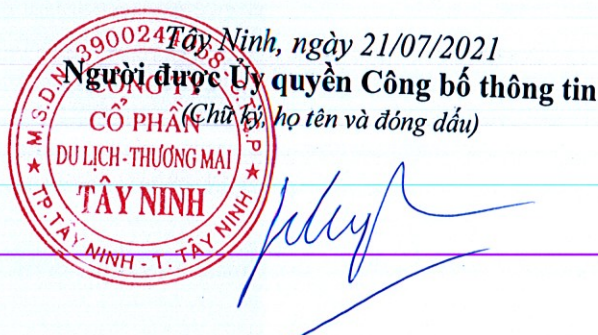 Tây Ninh, ngày 21/07/2021
Người được Ủy quyền Công bố thông tin
(Chữ ký, họ tên và đóng dấu)
CÔNG TY
CỔ PHẦN
DU LỊCH - THƯƠNG MẠI
TÂY NINH
TP.TÂY NINH - T. TÂY NINH